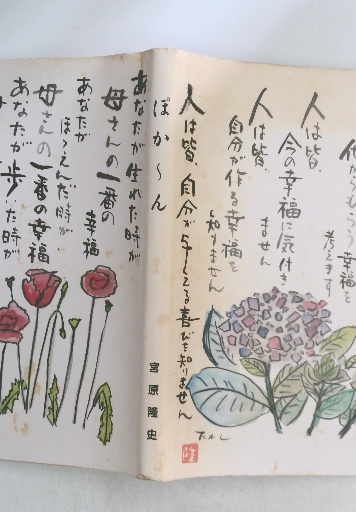 何かをもらう幸福を
考えます
人は皆、
今の幸福に気付き
ません
人は皆、
自分が作る幸福を
知りません
人は皆、自分が与えてる喜びを知りません
たかし
隆
ぽか〜ん
宮原隆史
あなたが生れた時が
母さんの一番の
幸福
あなたが
ほゝえんだ時が
母さんの一番の幸福
あなたが歩いた時が